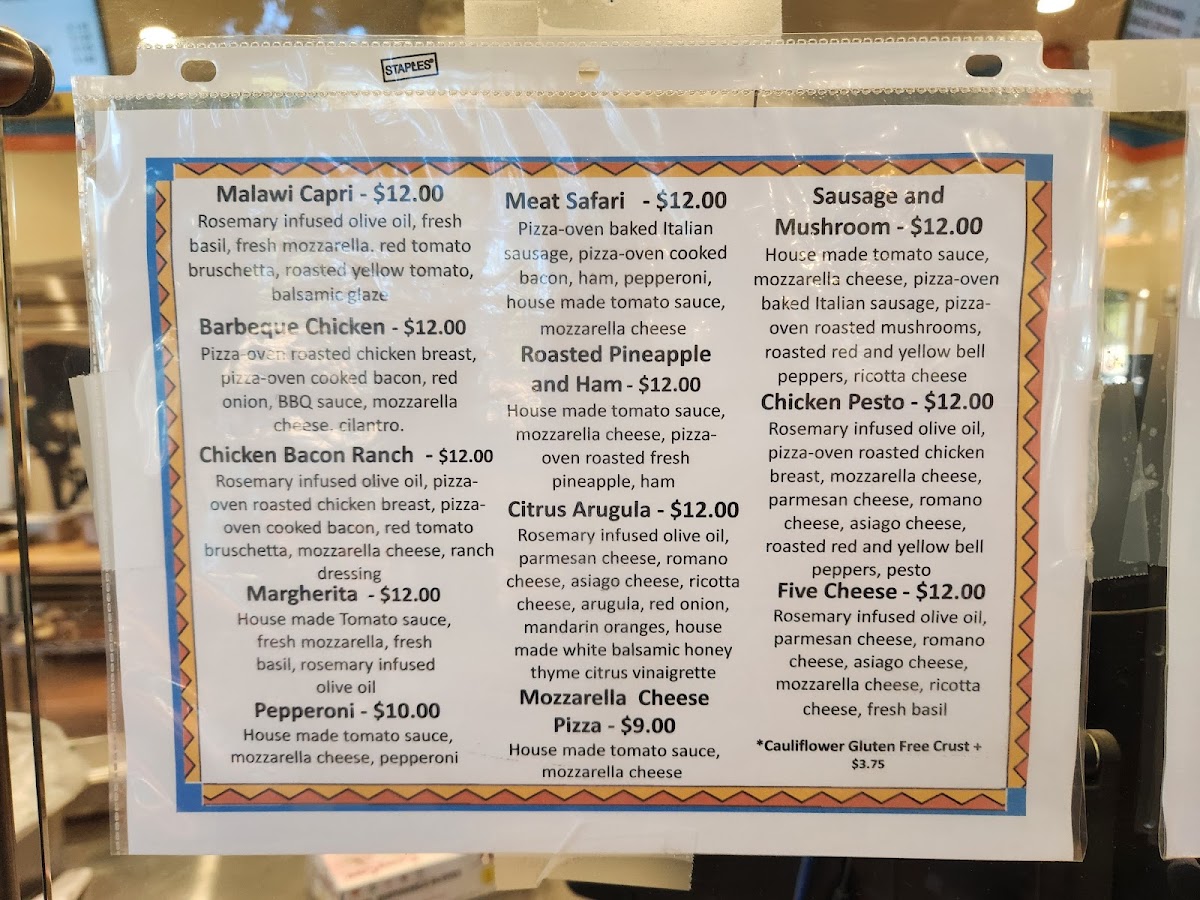 STAPLES
Malawi Capri - $12.00
Rosemary infused olive oil, fresh
basil, fresh mozzarella. red tomato
bruschetta, roasted yellow tomato,
balsamic glaze
Barbeque Chicken - $12.00
Pizza-oven roasted chicken breast,
pizza-oven cooked bacon, red
onion, BBQ sauce, mozzarella
cheese. cilantro.
Chicken Bacon Ranch - $12.00
Rosemary infused olive oil, pizza-
oven roasted chicken breast, pizza-
oven cooked bacon, red tomato
bruschetta, mozzarella cheese, ranch
dressing
Margherita - $12.00
House made Tomato sauce,
fresh mozzarella, fresh
basil, rosemary infused
olive oil
Pepperoni - $10.00
House made tomato sauce,
mozzarella cheese, pepperoni
Meat Safari - $12.00
Pizza-oven baked Italian
sausage, pizza-oven cooked
bacon, ham, pepperoni,
house made tomato sauce,
mozzarella cheese
Roasted Pineapple
and Ham - $12.00
House made tomato sauce,
mozzarella cheese, pizza-
oven roasted fresh
pineapple, ham
Citrus Arugula - $12.00
Rosemary infused olive oil,
parmesan cheese, romano
cheese, asiago cheese, ricotta
cheese, arugula, red onion,
mandarin oranges, house
made white balsamic honey
thyme citrus vinaigrette
Mozzarella Cheese
Pizza - $9.00
House made tomato sauce,
mozzarella cheese
Sausage and
Mushroom - $12.00
House made tomato sauce,
mozzarella cheese, pizza-oven
baked Italian sausage, pizza-
oven roasted mushrooms,
roasted red and yellow bell
peppers, ricotta cheese
Chicken Pesto - $12.00
Rosemary infused olive oil,
pizza-oven roasted chicken
breast, mozzarella cheese,
parmesan cheese, romano
cheese, asiago cheese,
roasted red and yellow bell
peppers, pesto
Five Cheese - $12.00
Rosemary infused olive oil,
parmesan cheese, romano
cheese, asiago cheese,
mozzarella cheese, ricotta
cheese, fresh basil
*Cauliflower Gluten Free Crust +
$3.75